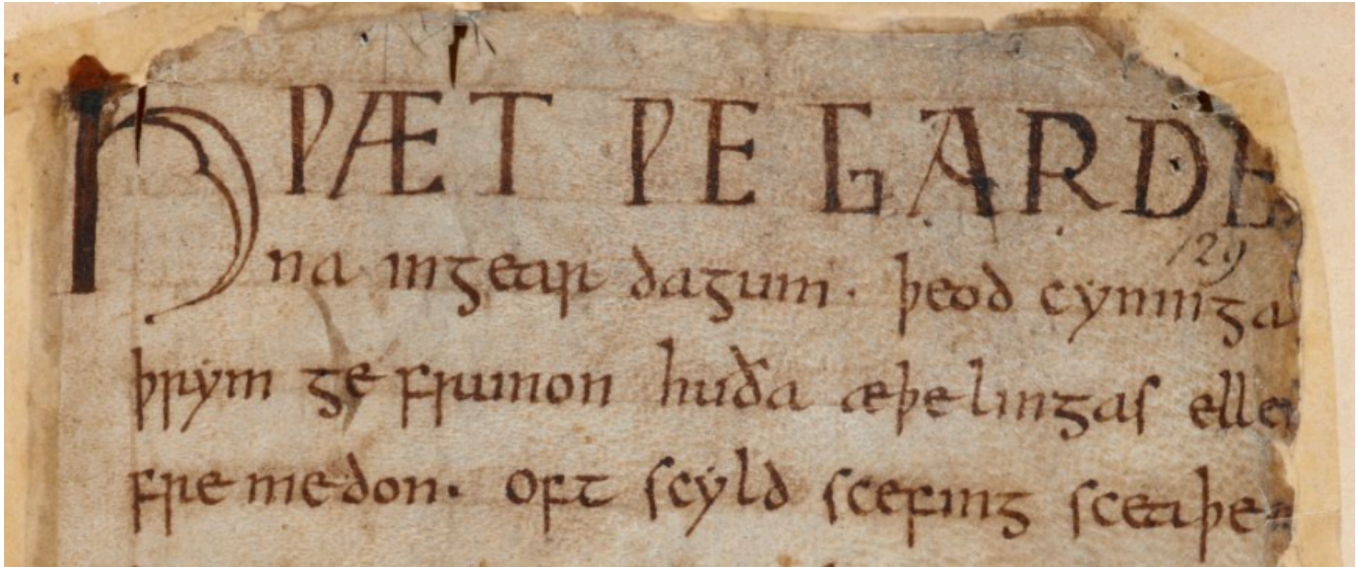 HǷÆT ǷE GARDE
129
na ingear dagum· þeod cyninga
þrym ge frunon huða æþelingas elle
fre medon· oft scyld scefing sceaþe